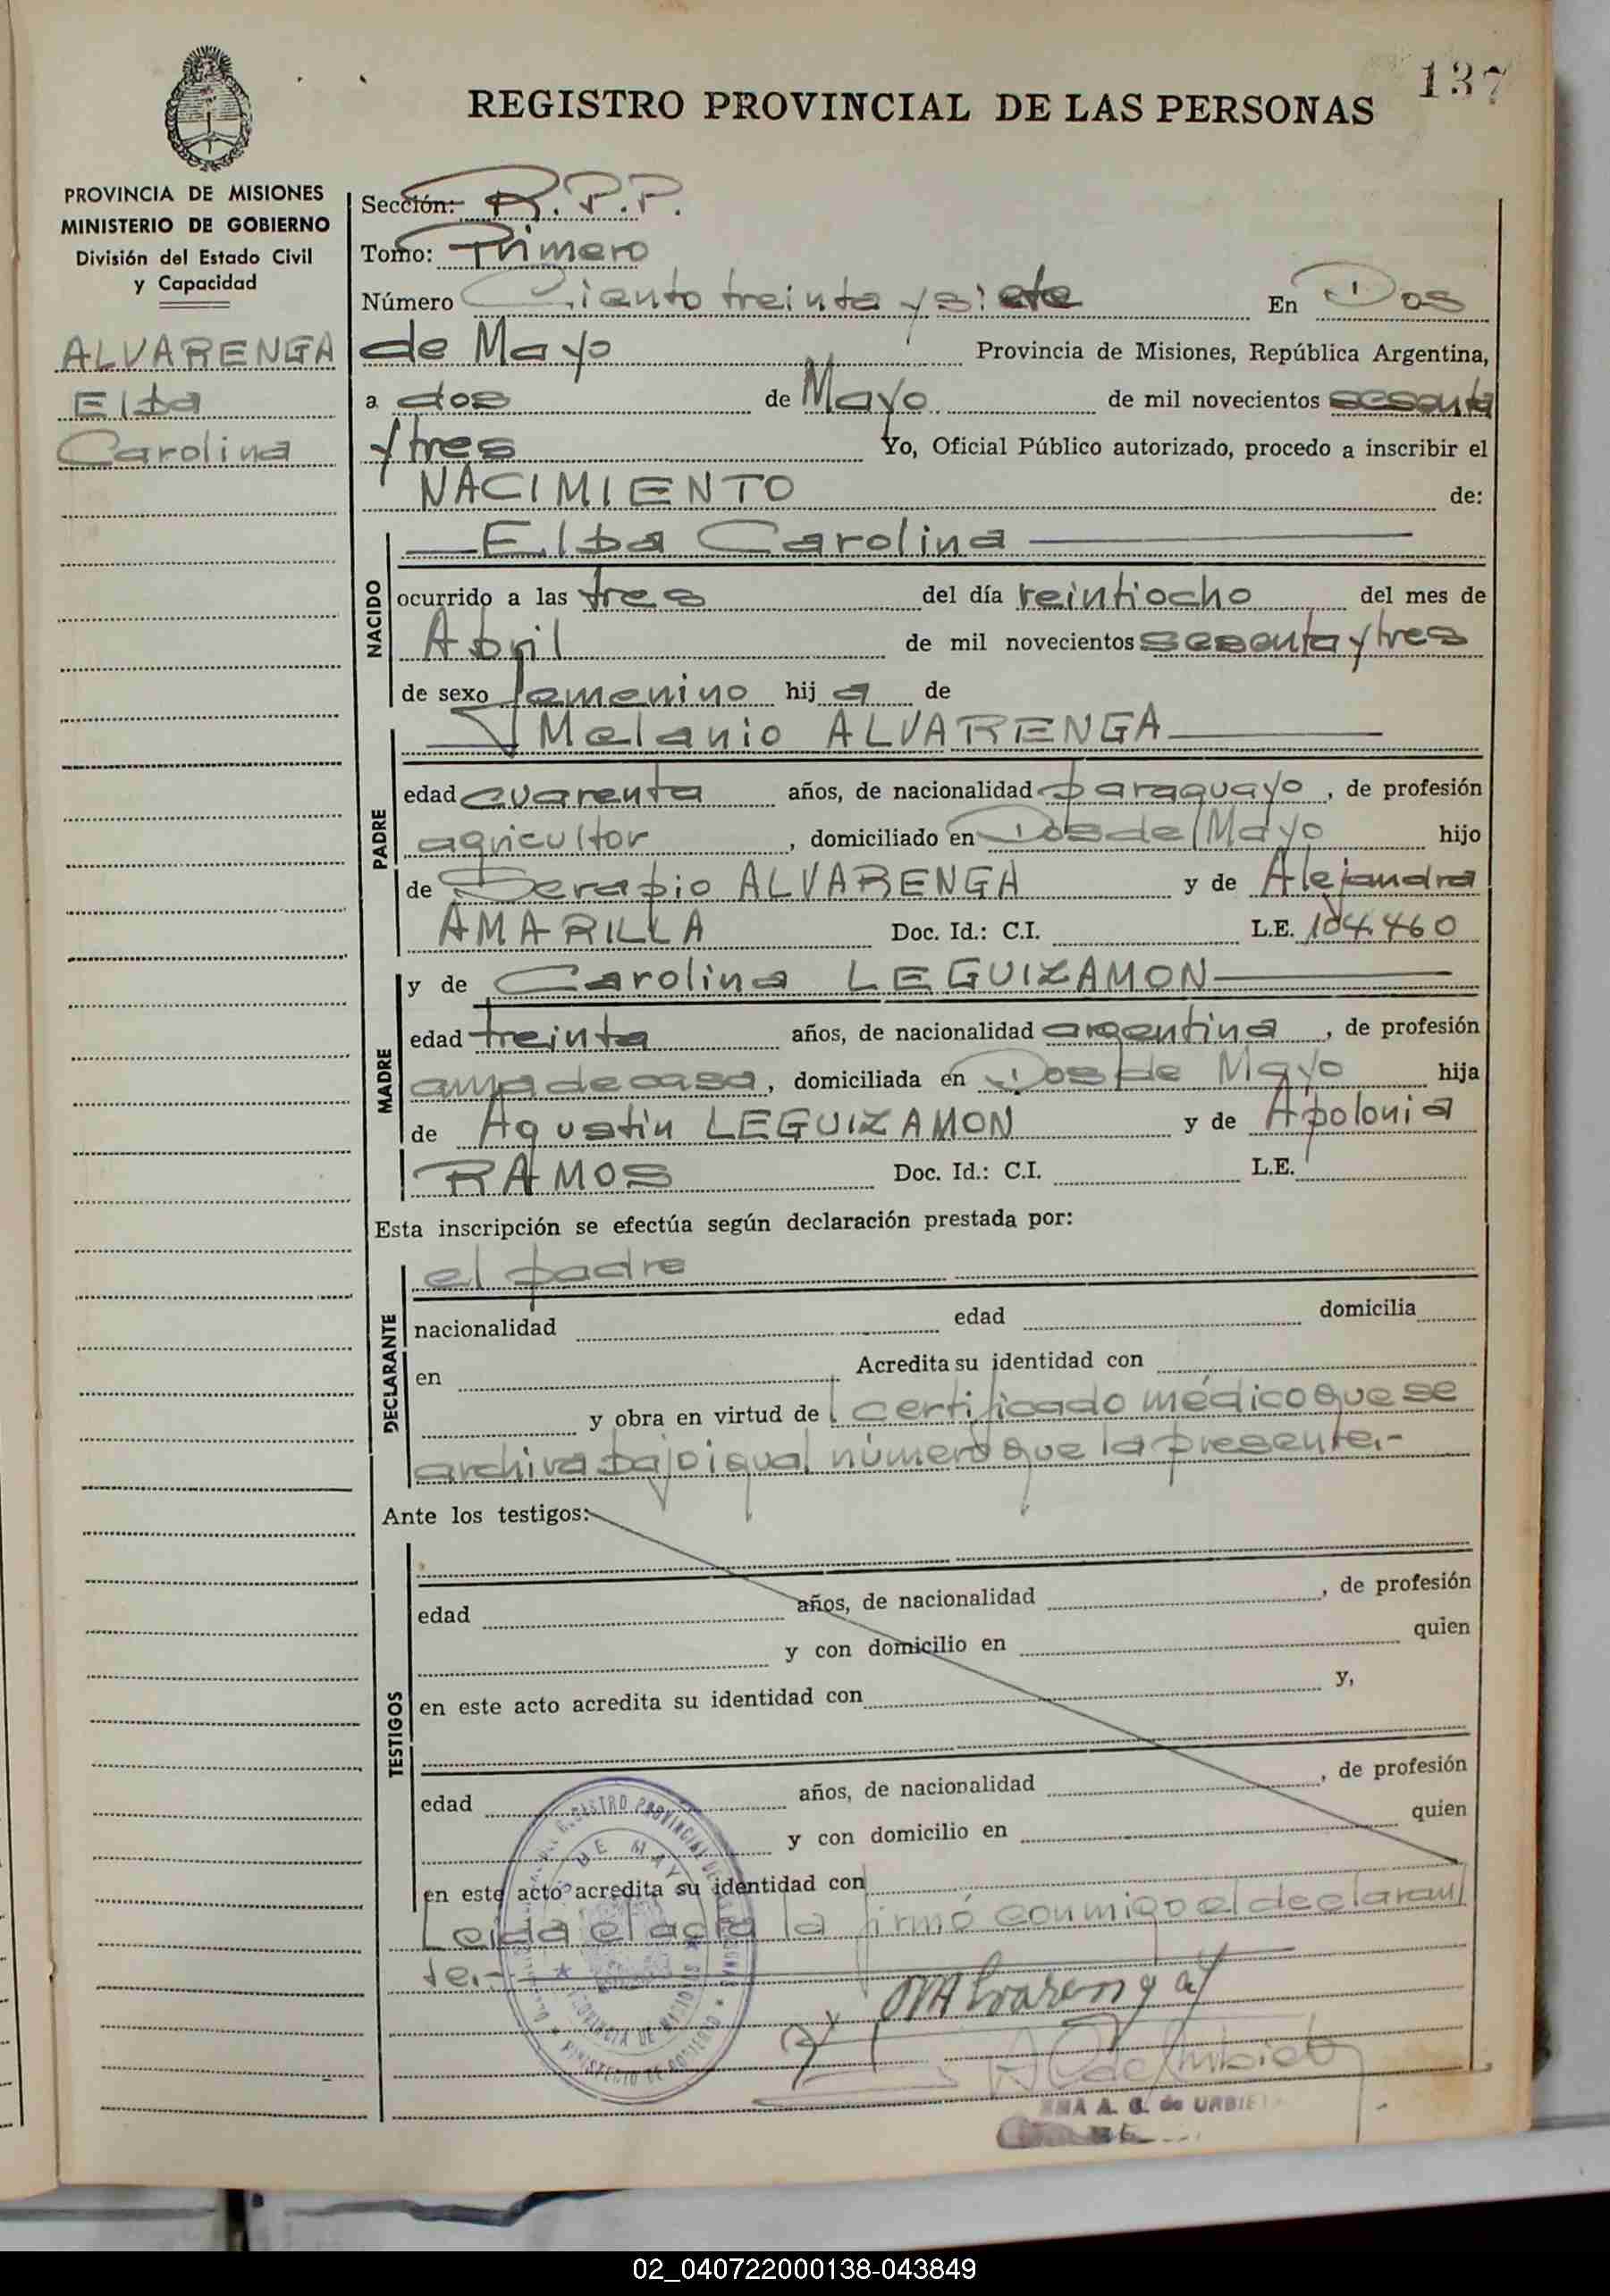 137
REGISTRO PROVINCIAL DE LAS PERSONAS
PROVINCIA DE MISIONES
MINISTERIO DE GOBIERNO
División del Estado Civil
y Capacidad
ALVARENGA
Elba
Carolina
Sección: R.P.P.
Tomo: Primero
Número Ciento treinta y siete En Dos
de Mayo Provincia de Misiones, República Argentina,
a dos de Mayo de mil novecientos sesenta
y tres Yo, Oficial Público autorizado, procedo a inscribir el
NACIMIENTO de:
NACIDO
Elba Carolina
ocurrido a las tres del día veintiocho del mes de
Abril de mil novecientos sesenta y tres
de sexo femenino hij a de
PADRE
Melanio ALVARENGA
edad cuarenta años, de nacionalidad paraguayo, de profesión
agricultor, domiciliado en Dos de Mayo hijo
de Serapio ALVARENGA y de Alejandra
AMARILLA Doc. Id.: C.I. L.E. 104.460
MADRE
y de Carolina LEGUIZAMON
edad treinta años, de nacionalidad argentina, de profesión
ama de casa, domiciliada en Dos de Mayo hija
de Agustín LEGUIZAMON y de Apolonia
RAMOS Doc. Id.: C.I. L.E.
Esta inscripción se efectúa según declaración prestada por:
DECLARANTE
el padre
nacionalidad edad domicilia
en Acredita su identidad con
y obra en virtud del certificado médico que se
archiva bajo igual número que la presente.-
Ante los testigos:
TESTIGOS
edad años, de nacionalidad , de profesión
y con domicilio en quien
en este acto acredita su identidad con y,
edad años, de nacionalidad , de profesión
y con domicilio en quien
en este acto acredita su identidad con
Leída el acta la firmó conmigo el declaran
te.-
REGISTRO PROVINCIAL DE LAS PERSONAS
DE MAYO
PROVINCIA DE MISIONES
MINISTERIO DE GOBIERNO
MAlvarenga
A. G. de URBIETA
02_040722000138-043849